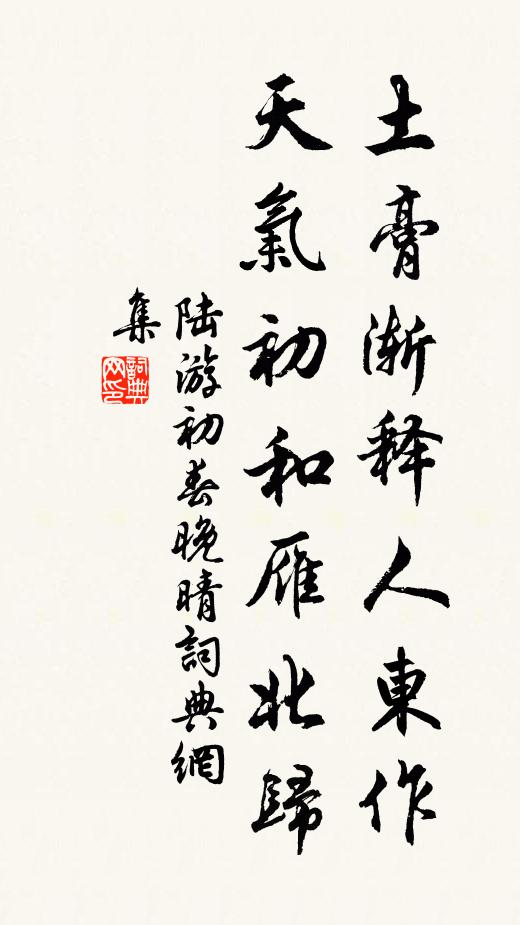 土膏渐释人東作
天氣初和雁北歸
陸游初春晚晴詞典網
集
詞典
网印